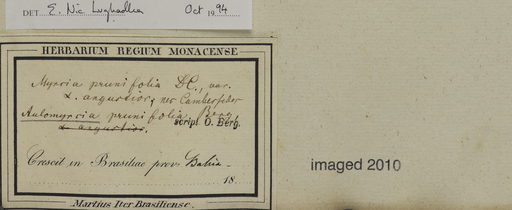 DET. E. Nic Lughadha Oct 1994
HERBARIUM REGIUM MONACENSE
Myrcia prunifolia DC., var.
α. angustior,
Automyrcia prunifolia, Berg,
α angustior.
script. O. Berg.
Crescit in Brasiliae prov. Bahia
18
Martius Iter Brasiliense.
imaged 2010